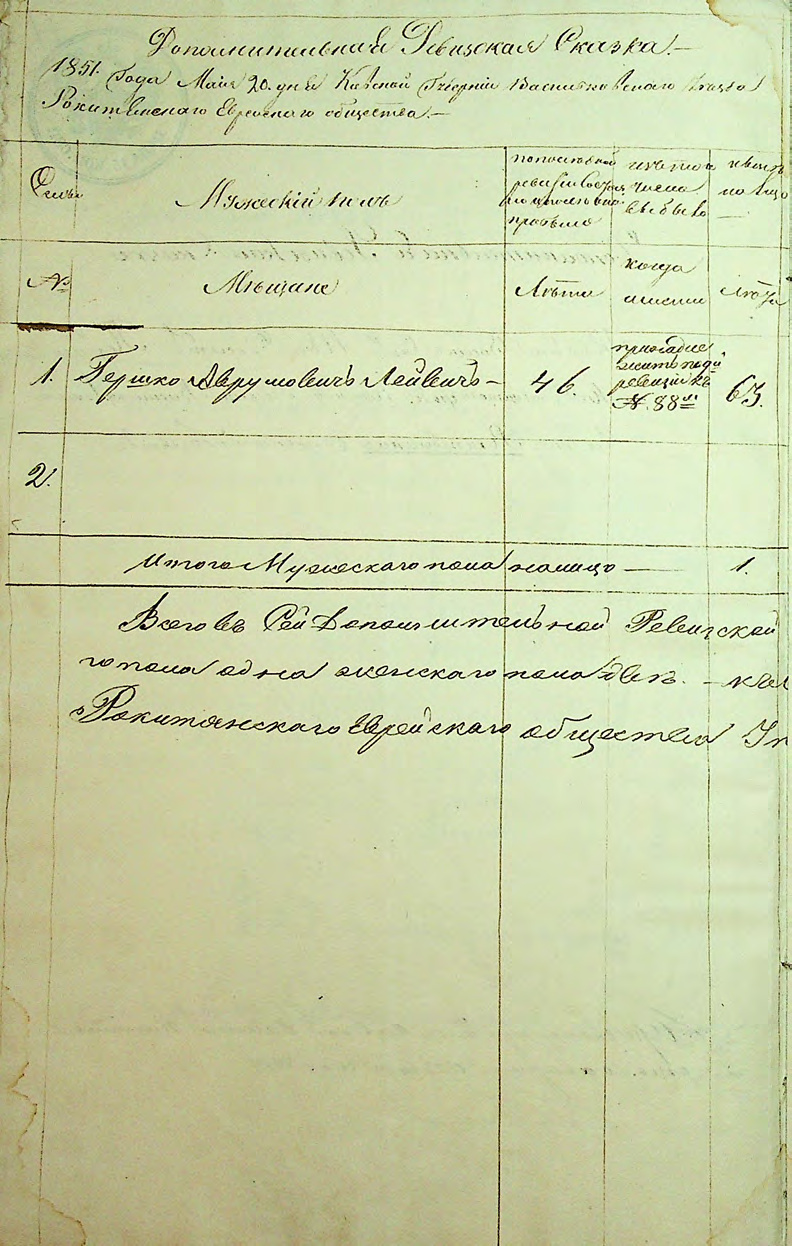 Дополнительная Ревизская Сказка. —
1851. Года Маія 20. дня Кіевской Губерніи Васильковскаго Уезда
Рокитянскаго Еврейскаго общества. —
Семьи
Мужескій полъ
по последней
ревизіи состояло
и после оной
прибыло
изъ того
числа
выбыло
и
на лицо
—
№
Мещане
Лета
когда
именно
Лета
1. Гершко Аврумовичъ Лейвичъ — 46. 63.
ревизіи
№ 88
2.
Итого Мужескаго пола налицо — 1.
Всего въ Сей Дополнительной Ревизской
го пола одна женскаго пола две. —
Рокитянскаго Еврейскаго общества